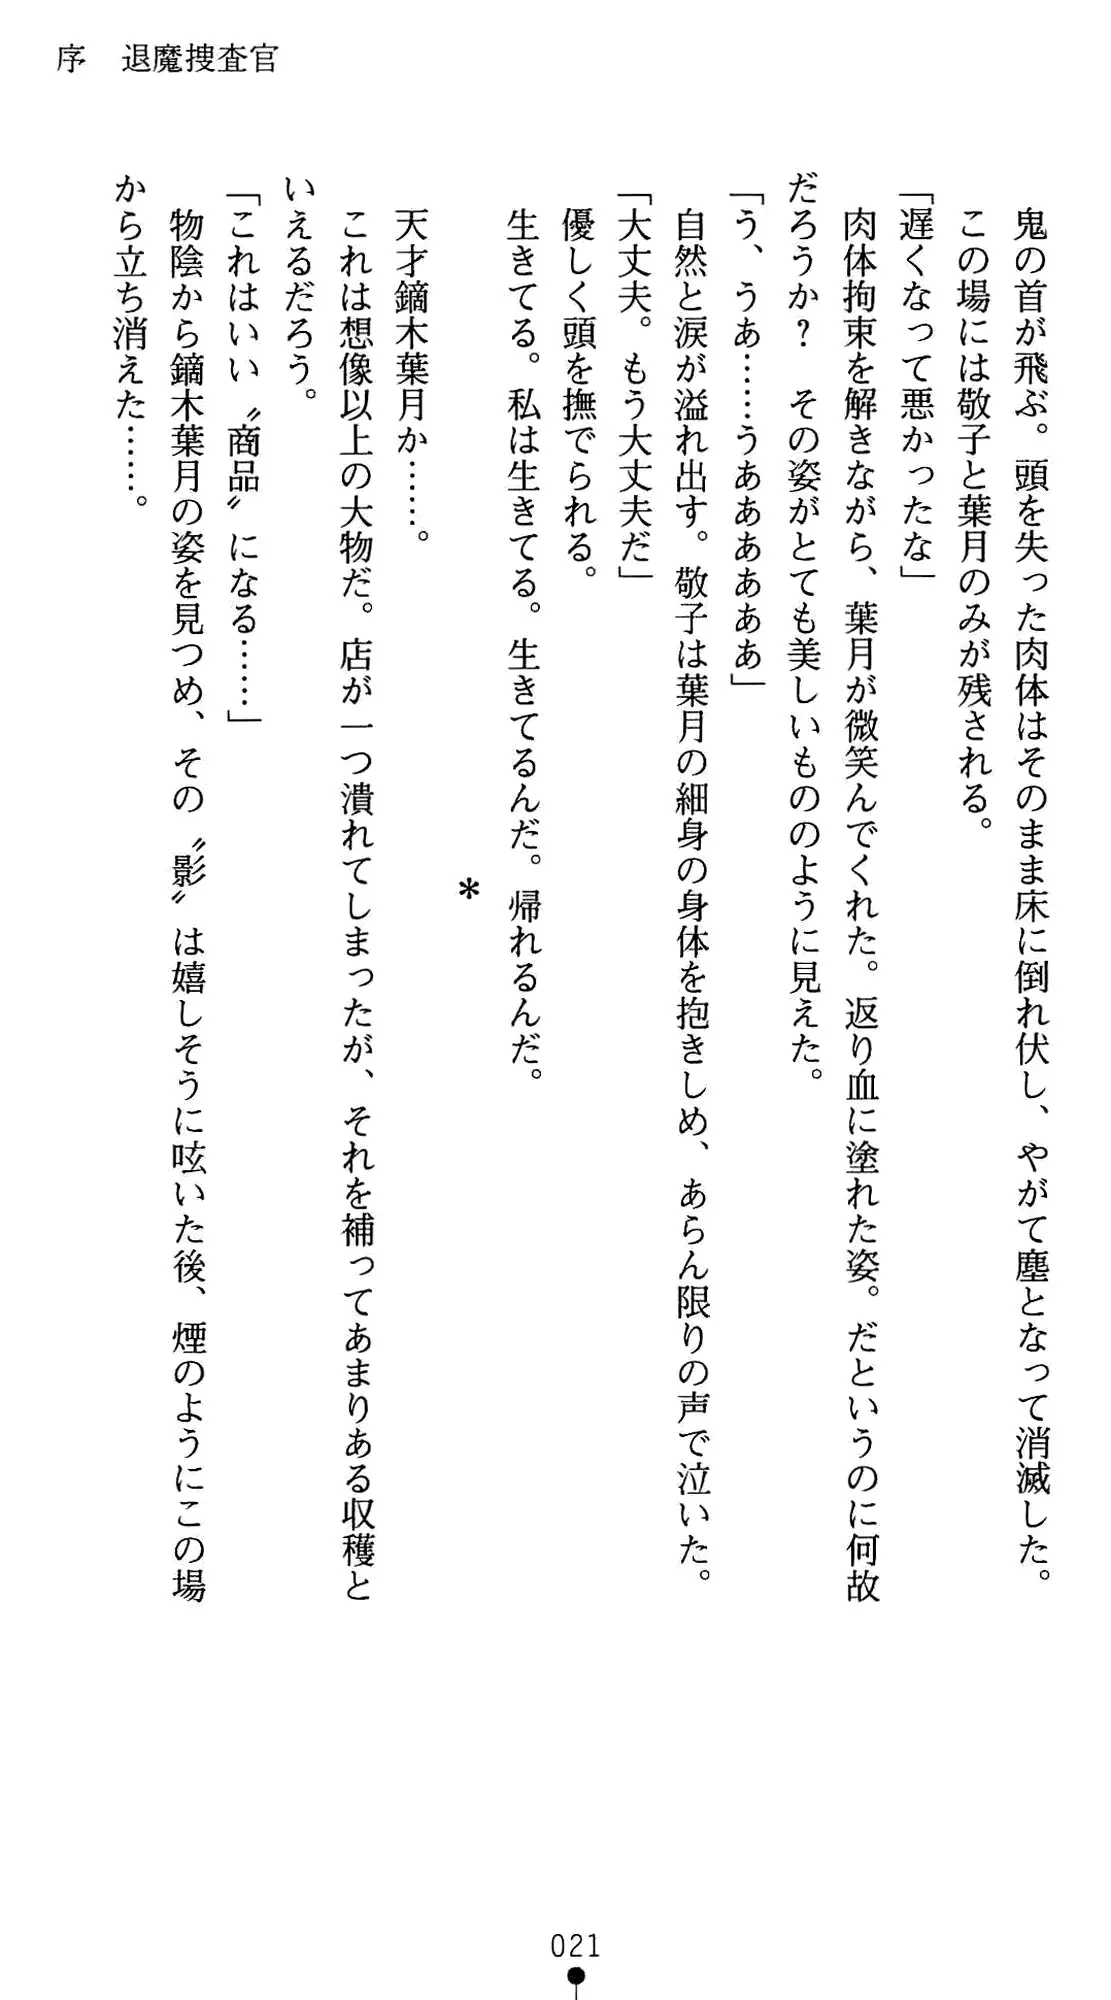 序　退魔捜査官
　鬼の首が飛ぶ。頭を失った肉体はそのまま床に倒れ伏し、やがて塵となって消滅した。
　この場には敬子と葉月のみが残される。
「遅くなって悪かったな」
　肉体拘束を解きながら、葉月が微笑んでくれた。返り血に塗れた姿。だというのに何故
だろうか？　その姿がとても美しいもののように見えた。
「う、うあ……うああああああ」
　自然と涙が溢れ出す。敬子は葉月の細身の身体を抱きしめ、あらん限りの声で泣いた。
「大丈夫。もう大丈夫だ」
　優しく頭を撫でられる。
　生きてる。私は生きてる。生きてるんだ。帰れるんだ。
＊
　天才鏑木葉月か……。
　これは想像以上の大物だ。店が一つ潰れてしまったが、それを補ってあまりある収穫と
いえるだろう。
「これはいい〝商品〟になる……」
　物陰から鏑木葉月の姿を見つめ、その〝影〟は嬉しそうに呟いた後、煙のようにこの場
から立ち消えた……。
021